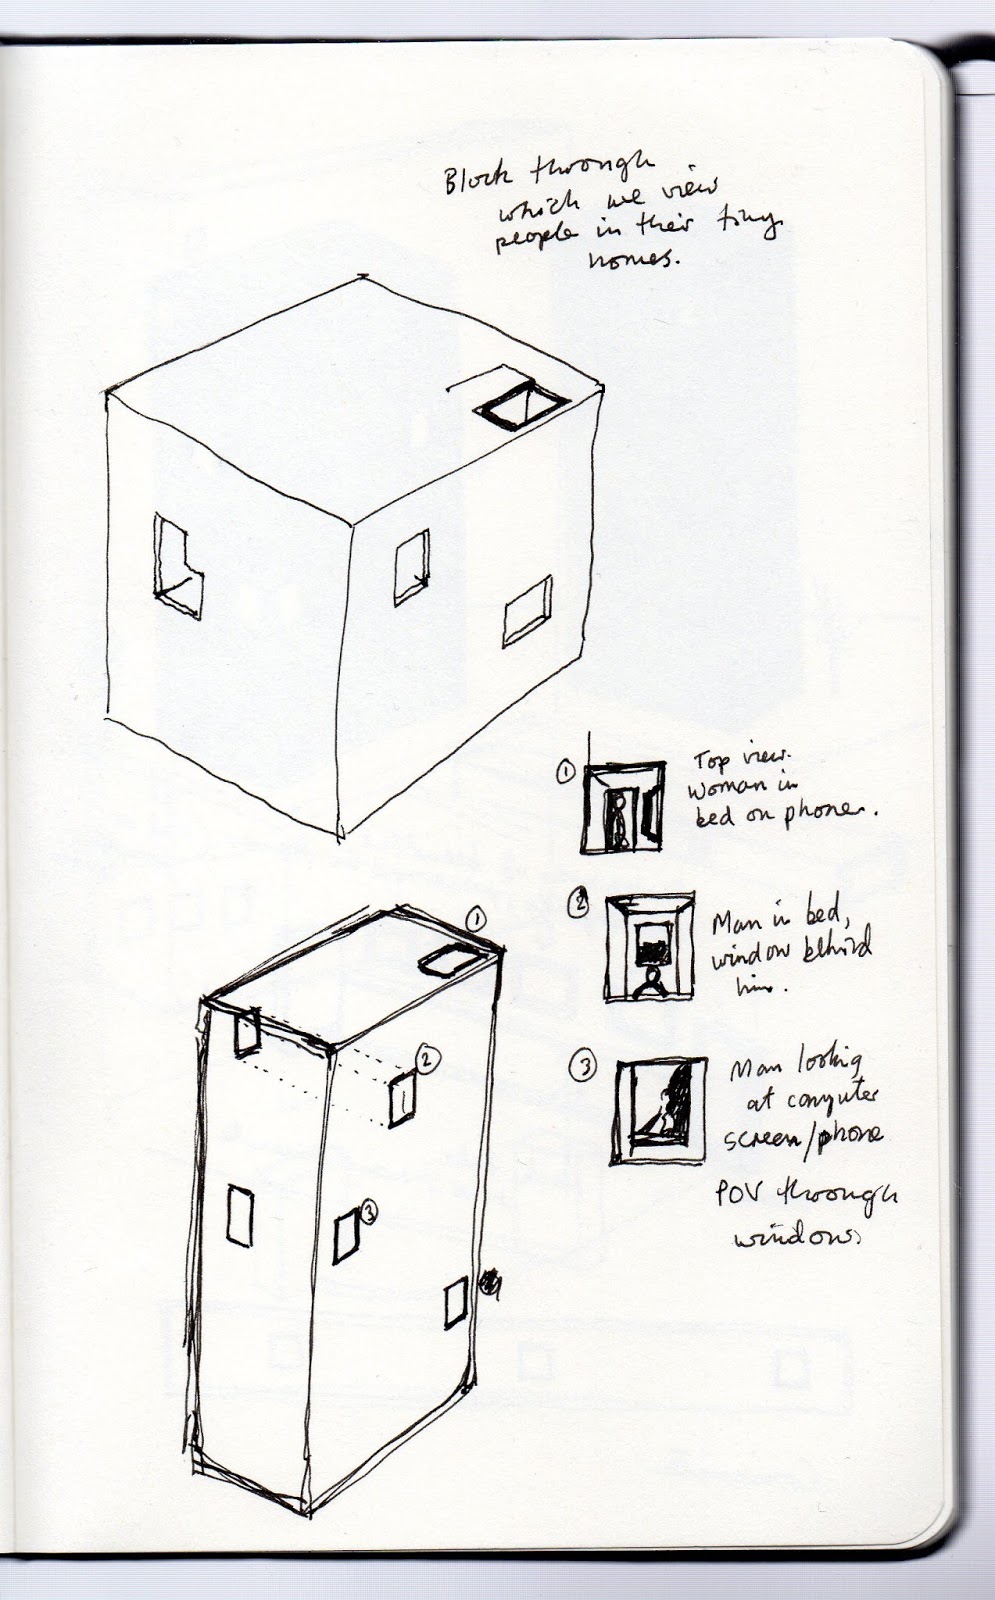 Block through
which we view
people in their tiny
homes.
①
Top view.
woman in
bed on phone.
②
Man in bed,
window behind
him.
③
Man looking
at computer
screen/phone
POV through
windows.
①
②
③